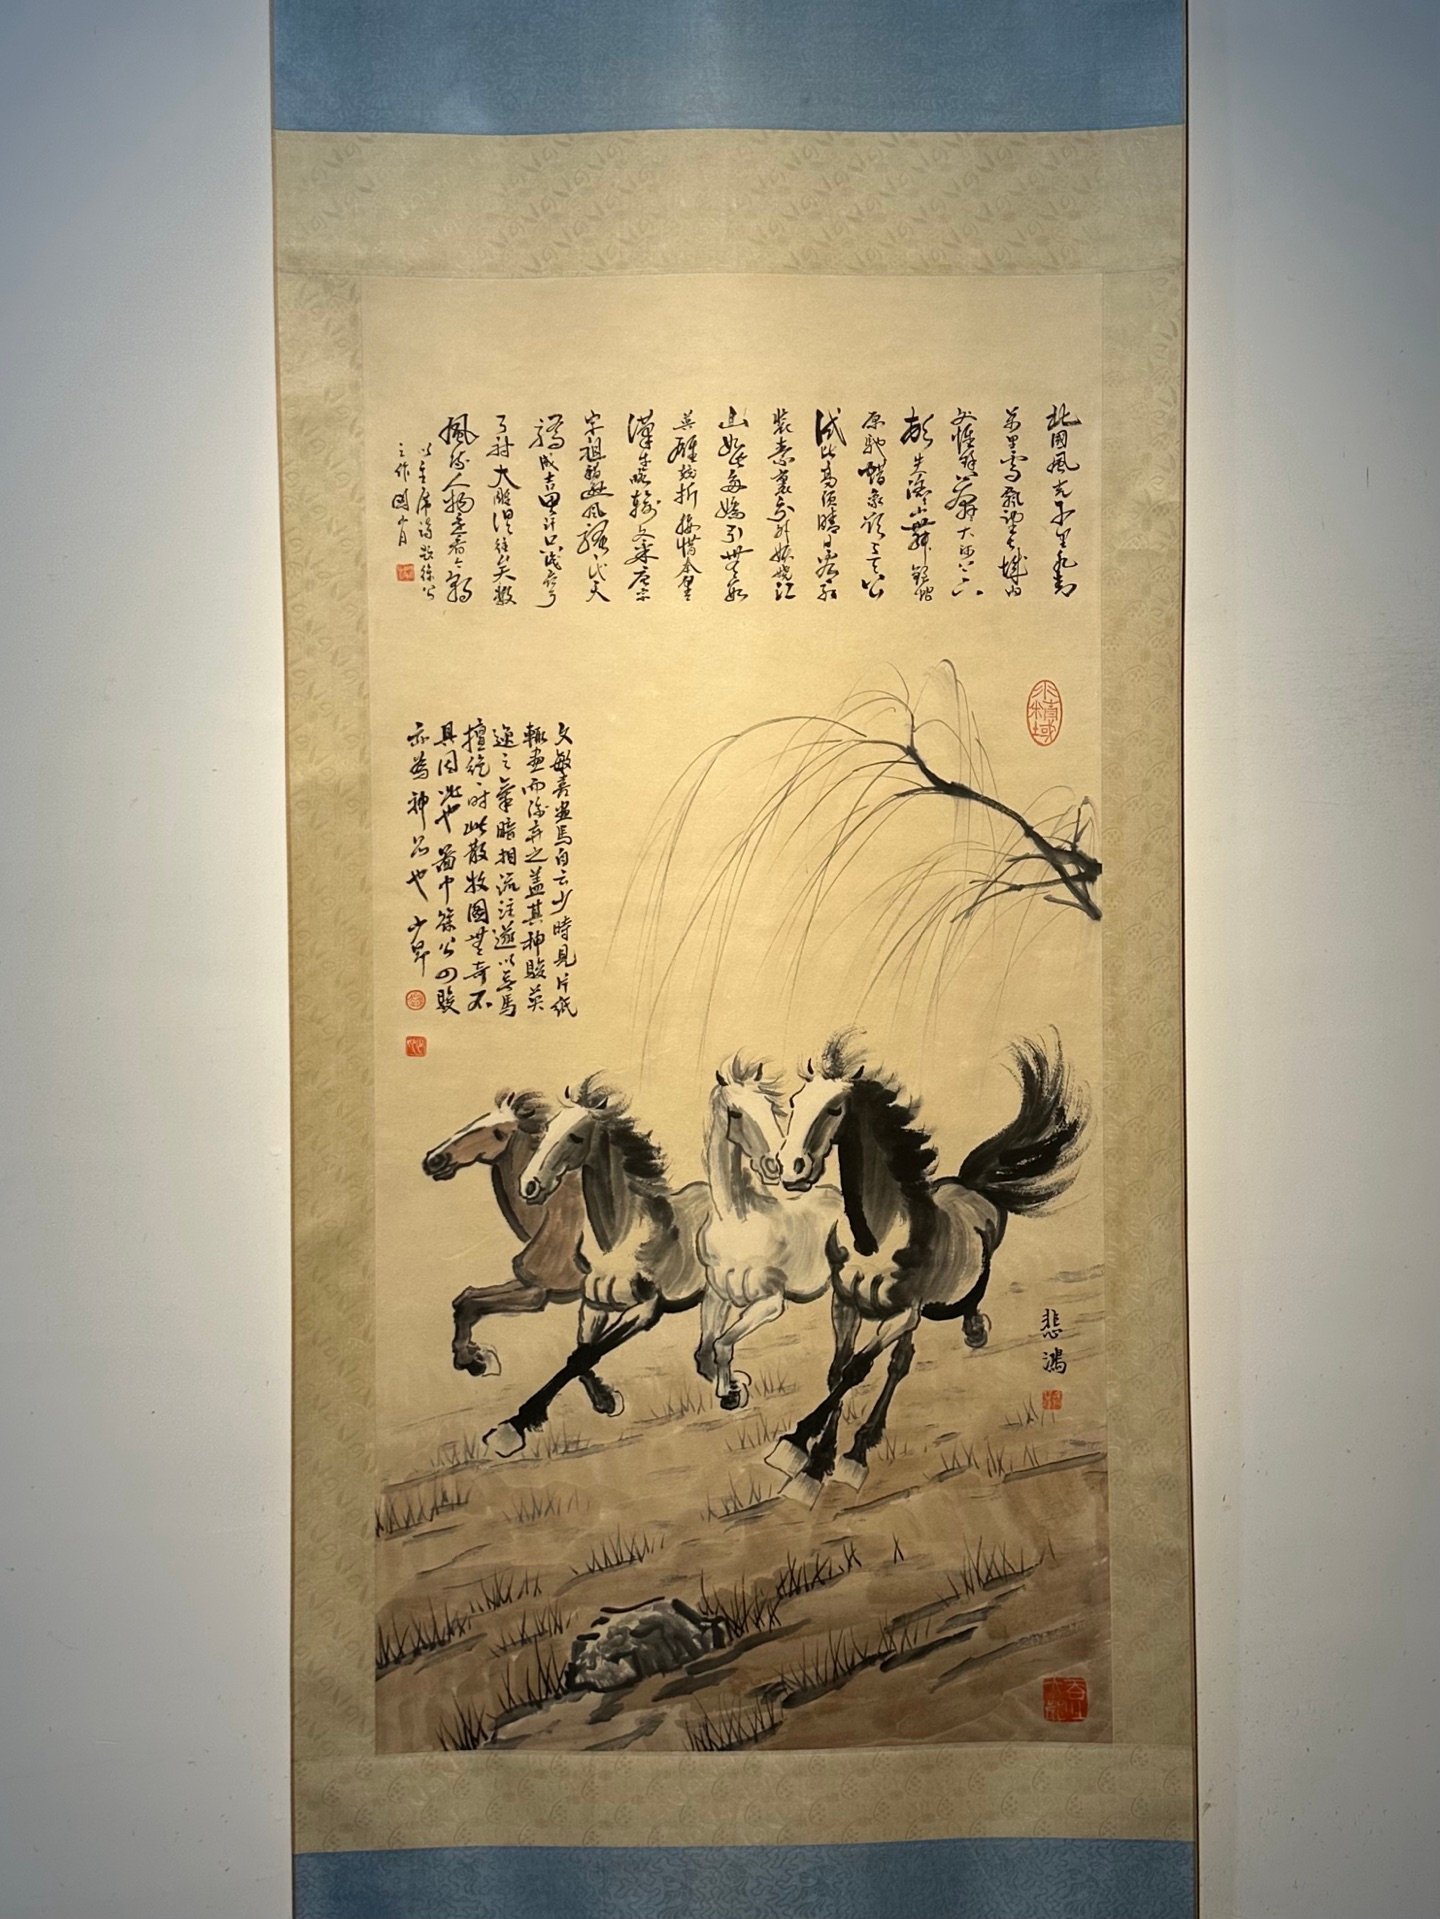 北國風光千里冰封
萬里雪飄望長城内
外惟餘莽莽大河上下
頓失滔滔山舞銀蛇
原馳蠟象欲与天公
試比高須晴日看紅
裝素裹分外妖嬈江
山如此多嬌引無數
英雄競折腰惜秦皇
漢武略輸文采唐宗
宋祖稍遜風騷一代天
驕成吉思汗只識彎
弓射大雕俱往矣數
風流人物還看今朝
以主席詩題徐公
之作
文敏喜畫馬自云少時見片紙
輒畫而後弃之蓋其神駿英
逸之氣暗相流注遂以畫馬
擅絕一時此散牧圖無奇不
具因也圖中徐公四駿
亦為神品也
悲鴻